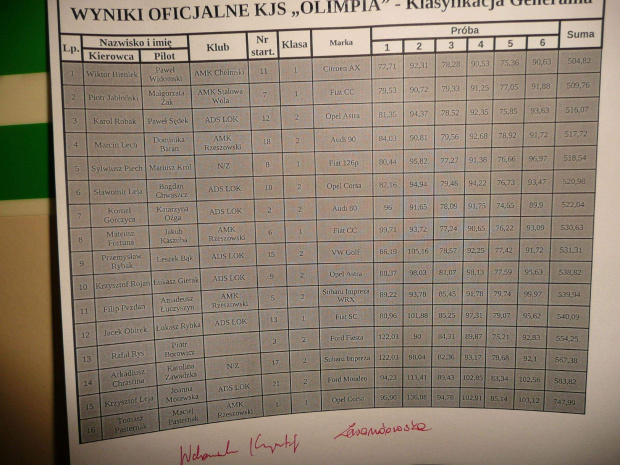 WYNIKI OFICJALNE KJS „OLIMPIA” - Klasyfikacja Generalna
Lp. Nazwisko i imię Klub Nr start. Klasa Marka Próba Suma
Kierowca Pilot 1 2 3 4 5 6
1 Wiktor Bieniek Paweł AMK Chełmski 11 1 Citroen AX 77,71 92,31 78,28 90,53 75,36 90,63 504,82
2 Piotr Jabłoński Małgorzata Żak AMK Stalowa Wola 7 1 Fiat CC 79,53 90,72 79,33 91,25 77,05 91,88 509,76
3 Karol Robak Paweł Sędek ADS LOK 12 2 Opel Astra 81,35 94,37 78,52 92,35 75,85 93,63 516,07
4 Marcin Lech Dominika Baran AMK Rzeszowski 18 2 Audi 90 84,03 90,81 79,56 92,68 78,92 91,72 517,72
5 Sylwiusz Piech Mariusz Król N/Z 8 1 Fiat 126p 80,44 95,82 77,27 91,38 76,66 96,97 518,54
6 Sławomir Leja Bogdan Chwaszcz ADS LOK 10 2 Opel Corsa 82,16 94,94 79,46 94,22 76,73 93,47 520,98
7 Kornel Gorczyca Katarzyna Ożga ADS LOK 2 2 Audi 80 96 91,65 78,09 91,75 74,65 89,9 522,04
8 Mateusz Fortuna Jakub Kaszuba AMK Rzeszowski 6 1 Fiat CC 99,71 93,72 77,24 90,65 76,22 93,09 530,63
9 Przemysław Rybak Leszek Bąk ADS LOK 15 2 VW Golf 86,19 105,16 78,57 92,25 77,42 91,72 531,31
10 Krzysztof Rojan Łukasz Gierak ADS LOK 9 2 Opel Astra 98,03 77,59 95,63 538,82
11 Filip Pezdan Amadeusz Łuczyszyn AMK Rzeszowski 5 2 Subaru Impreza WRX 89,22 93,78 85,45 91,78 79,74 99,97 539,94
12 Jacek Obirek Łukasz Rybka ADS LOK 13 1 Fiat SC 80,96 101,88 85,25 97,31 79,07 95,62 540,09
13 Rafał Ryś Piotr Borowicz 3 2 Ford Fiesta 122,03 90 84,31 89,87 75,21 92,83 554,25
14 Arkadiusz Chrastina Karolina Zawadzka N/Z 17 2 Subaru Impreza 122,03 98,04 82,36 93,17 79,68 92,1 567,38
15 Krzysztof Leja Joanna ADS LOK 21 2 Ford Mondeo 94,23 113,41 89,43 102,85 83,34 102,56 583,82
16 Tomasz Pasternak Maciej Pasternak AMK Rzeszowski 1 Opel Corsa 94,78 102,91 85,14 103,12